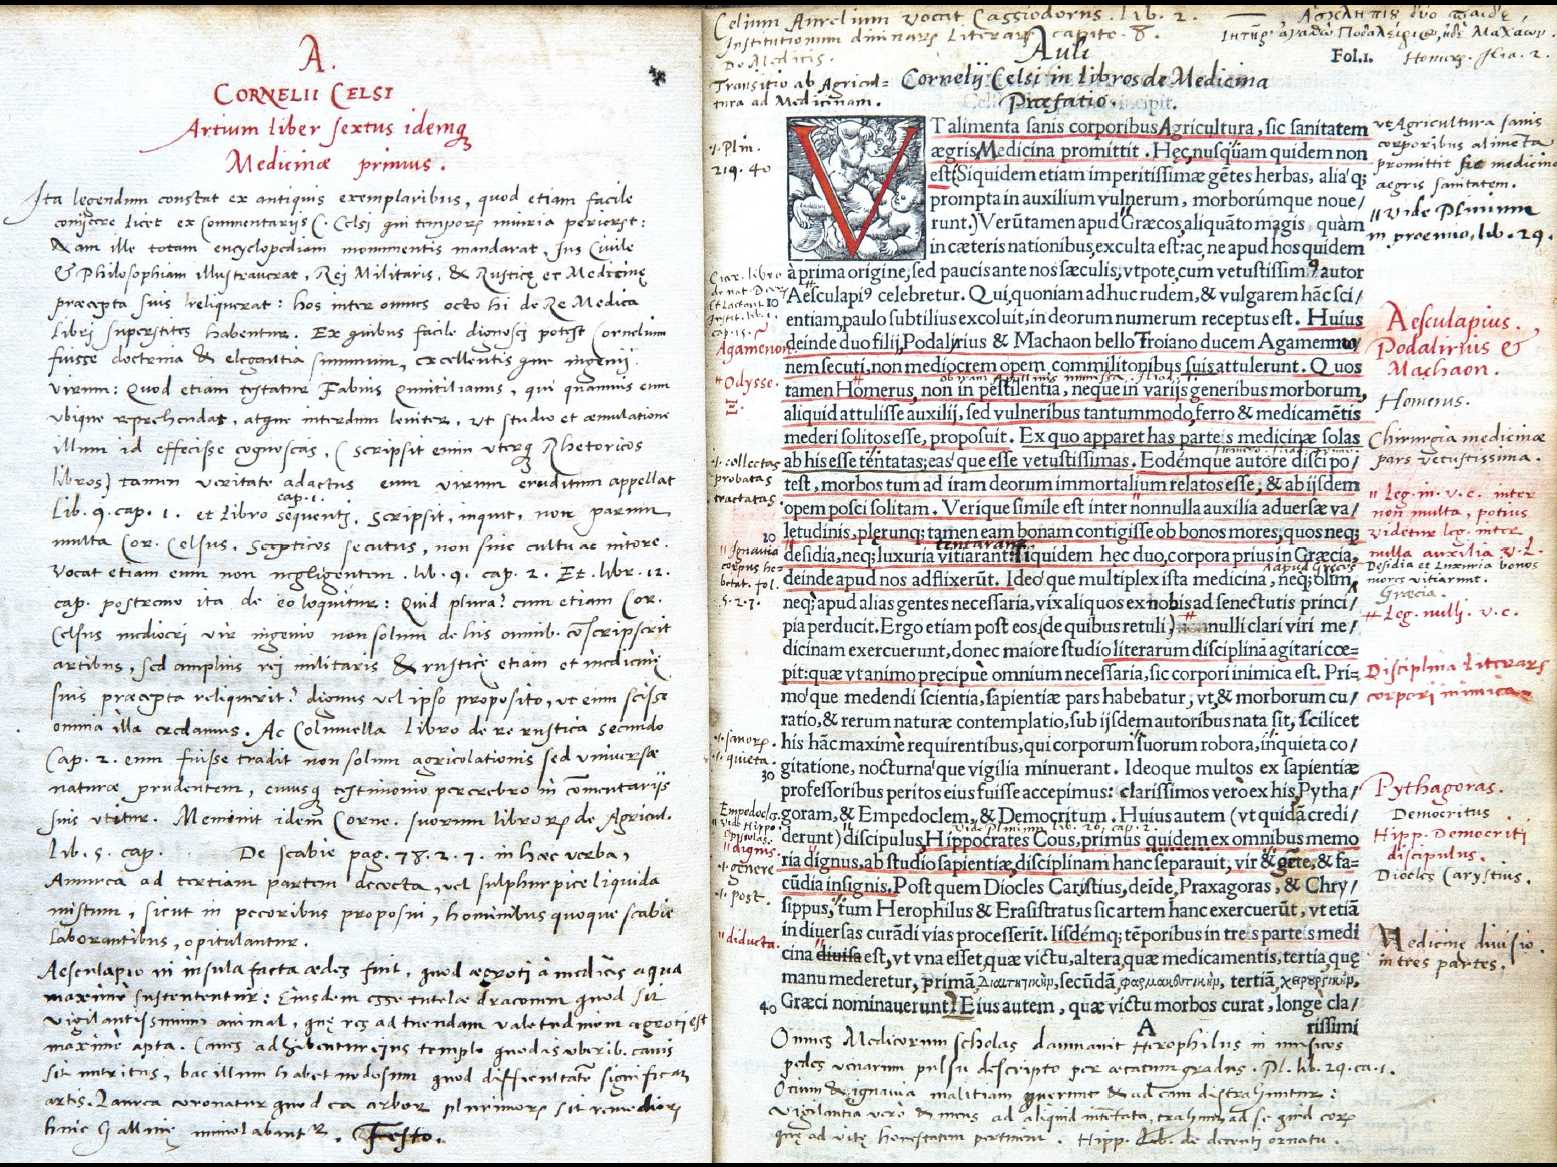 A.
CORNELII CELSI
Artium liber sextus idemq
Medicinæ primus.
Ita legendum constat ex antiquis exemplaribus, quod etiam facile
conijcere licet ex commentarijs C. Celsi qui temporū iniuria perierūt:
Nam ille totam encyclopædiam monumentis mandarat. Ius Ciuile
& Philosophiam illustrauerat, Rei Militaris, & Rusticę et Medicinę
præcepta suis reliquerat: hos inter omnes octo hi de Re Medica
Libri superstites habentur. Ex quibus facile dignosci potest Cornelium
fuisse doctrina & elegantia summum, excellentis que ingenij
virum: Quod etiam testatur Fabius Quintilianus, qui quamuis eum
ubique reprehendas, atque interdum leuiter, ut studio et æmulatione
illum id effecisse cognoscas, (Scripsit enim uterq Rhetoricos
libros) tamen veritate adactus eum virum eruditum appellat
cap. 1.
Lib. 9. cap. 1. et Libro sequenti. Scripsit, inquit, non parum
multa Cor. Celsus, Scepticos secutus, non sine cultu ac nitore.
Vocat etiam eum non negligentem. lib. 9. cap. 2. Et libr. 12.
cap. postremo ita de eo loquitur: Quid plura? cum etiam Cor.
Celsus mediocri vir ingenio non solum de his omnib. cōscripserit
artibus, sed amplius rei militaris & rusticę etiam et medicinę
suis præcepta reliquerit? dignus vel ipso proposito, ut eum scisse
omnia illa credamus. Ac Columella Libro de re rustica secundo
Cap. 2. eum fuisse tradit non solum agricolationis sed universæ
naturæ prudentem, eiusq testimonio percrebro in cōmentarijs
suis utitur. Meminit idem Corne. suorum librorū de Agricul.
Lib. 5. cap. De scabie pag. 78. 2. 7. in hæc verba,
Amurca ad tertiam partem decocta, vel sulphur pice liquida
mistum, sicut in pecoribus proposui, hominibus quoque scabie
laborantibus, opitulantur.
Aesculapio in insula facta ædes fuit, quod ægroti à medicis aqua
maximè sustententur: Eiusdem esse tutelæ draconem quod sit
vigilantissimum animal, quę res ad tuendam valetudinem ægroti est
maximè apta. Canes adhibentur eius templo quod is uberib. canis
sit nutritus, bacillum habet nodosum quod difficultatē significat
artis. Laurea coronatur quod ea arbor plurimorū sit remediorū
huic Gallinę immolabantur. Festo.
Celium Aurelium vocat Cassiodorus. lib. 2.
Institutionum diuinarū Literarū capite 8.
De Medicis.
Homerus. Ilia. 2.
Fol.1.
Transitio ab Agricul=
tura ad Medicinam.
Auli
Cornelij Celsi in libros de Medicina
Præfatio.
VT alimenta sanis corporibus Agricultura, sic sanitatem
ægris Medicina promittit. Hęc nusquam quidem non
est: Siquidem etiam imperitissimæ gētes herbas, alia'q;
prompta in auxilium vulnerum, morborúmque noue/
runt.) Verūtamen apud Græcos, aliquāto magis, quàm
in cæteris nationibus, exculta est: ac, ne apud hos quidem
à prima origine, sed paucis ante nos sæculis, vtpote cum vetustissim9 autor
Aesculapi9 celebretur. Qui, quoniam adhuc rudem, & vulgarem hāc sci/
entiam, paulo subtilius excoluit, in deorum numerum receptus est. Huius
deinde duo filij, Podalirius & Machaon bello Troiano ducem Agamemno
nem secuti, non mediocrem opem commilitonibus suis attulerunt. Quos
tamen Homerus, non in pestilentia, neque in varijs generibus morborum,
aliquid attulisse auxilij, sed vulneribus tantummodo, ferro & medicamētis
mederi solitos esse, proposuit. Ex quo apparet has parteis medicinæ solas
ab his esse tentatas; eas'que esse vetustissimas. Eodémque autore disci po/
test, morbos tum ad iram deorum immortalium relatos esse, & ab ijsdem
opem posci solitam. Verique simile est inter nonnulla auxilia aduersæ va/
letudinis, plerunq; tamen eam bonam contigisse ob bonos mores, quos neq;
desidia, neq; luxuria vitiarant. Siquidem hec duo, corpora prius in Græcia,
deinde apud nos adflixerūt. Ideo'que multiplex ista medicina, neq; olim,
neq; apud alias gentes necessaria, vix aliquos ex nobis ad senectutis princi/
pia perducit. Ergo etiam post eos, (de quibus retuli) nonnulli clari viri me/
dicinam exercuerunt, donec maiore studio literarum disciplina agitari cœ=
pit: quæ vt animo pręcipuè omnium necessaria, sic corpori inimica est. Pri=
mo'que medendi scientia, sapientiæ pars habebatur, vt, & morborum cu/
ratio, & rerum naturæ contemplatio, sub ijsdem autoribus nata sit, scilicet
his hāc maximè requirentibus, qui corporum suorum robora, inquieta co/
gitatione, nocturna'que vigilia minuerant. Ideoque multos ex sapientiæ
professoribus peritos eius fuisse accepimus: clarissimos verò ex his, Pytha/
goram, & Empedoclem, & Democritum. Huius autem (vt quidā credi/
derunt) discipulus, Hippocrates Cous, primus quidem ex omnibus memo
ria dignus, ab studio sapientiæ, disciplinam hanc separauit, vir & gēte, & fa=
cūdia insignis. Post quem Diocles Caristius, deīde, Praxagoras, & Chry/
sippus, tum Herophilus & Erasistratus sic artem hanc exercuerūt, vt etiā
in diuersas curādi vias processerīt. Iisdémq; tēporibus in treis parteis medi
cina diuisa est, vt vna esset, quæ victu, altera, quæ medicamentis, tertia, quę
manu mederetur, primā, Διαιτητικὴν, secūdā, φαρμακευτικὴν, tertiā, χειρουργικὴν,
Græci nominauerunt. Eius autem, quæ victu morbos curat, longè cla/
A
rissimi
Plin.
219. 40
10
Agamemnon
Odysse.
Ξ.
collectas
probatas
tractatas.
20
Ignauia
corpus he=
betat. fol.
5. 27.
sanorū.
quieta.
30
Empedocles.
dignis.
genere
post.
diducta.
40
vt Agricultura sanis
corporibus alimenta
promittit sic medicina
aegris sanitatem.
Vide Plinium
in proemio, lib. 29.
Aesculapius.
Podalirius &
Machaon.
Homerus.
Chirurgia medicinæ
pars vetustissima.
Leg. in. v. c. inter
non multa, potius
videtur leg. inter
nulla auxilia v. L.
Desidia et Luxuria bonos
mores vitiarunt.
Græcia.
Leg. nulli. v. c.
Disciplina Literarū
corpori inimica
Pythagoras.
Democritus
Hipp. Democriti
discipulus.
Diocles Carystius.
Medicinę diuisio
in tres partes.
Omnes Medicorum scholas damnauit Herophilus in musicos
pedes venarum pulsu descripto per ætatum gradus. Pl. lib. 29. ca. 1.
Ocium & ignauia malitiam querunt & ad eam distrahuntur:
Vigilantia verò & mens ad aliquid intētata, trahunt ad se quid eorū
quę ad vitę honestatem pertinent. Hipp. Lib. de decenti ornatu.